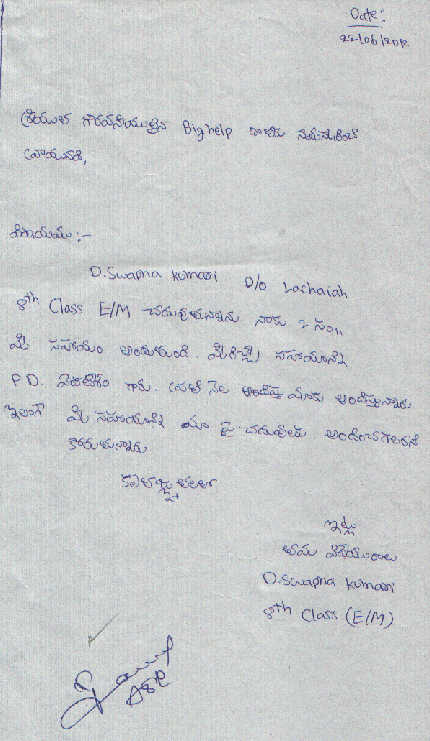 Date:
22/06/2012
శ్రీయుత గౌరవనీయులైన Bighelp వారికి నమస్కరించి
వ్రాయునది,
విషయము :-
D. Swapna kumari D/o Lachaiah
8th Class E/M చదువుతున్నాను నాకు 2 సం॥
మీ సహాయం అందుతుంది. మీరిచ్చే సహాయాన్ని
P.D. వెంకటేశం గారు. ప్రతి నెల మాకు అందిస్తున్నారు
ఇలాగే మీ సహాయాన్ని మా పై చదువులకు అందించగలరని
కోరుతున్నాను
కృతజ్ఞతలతో
ఇట్లు
తమ విధేయురాలు
D. Swapna kumari
8th Class (E/M)